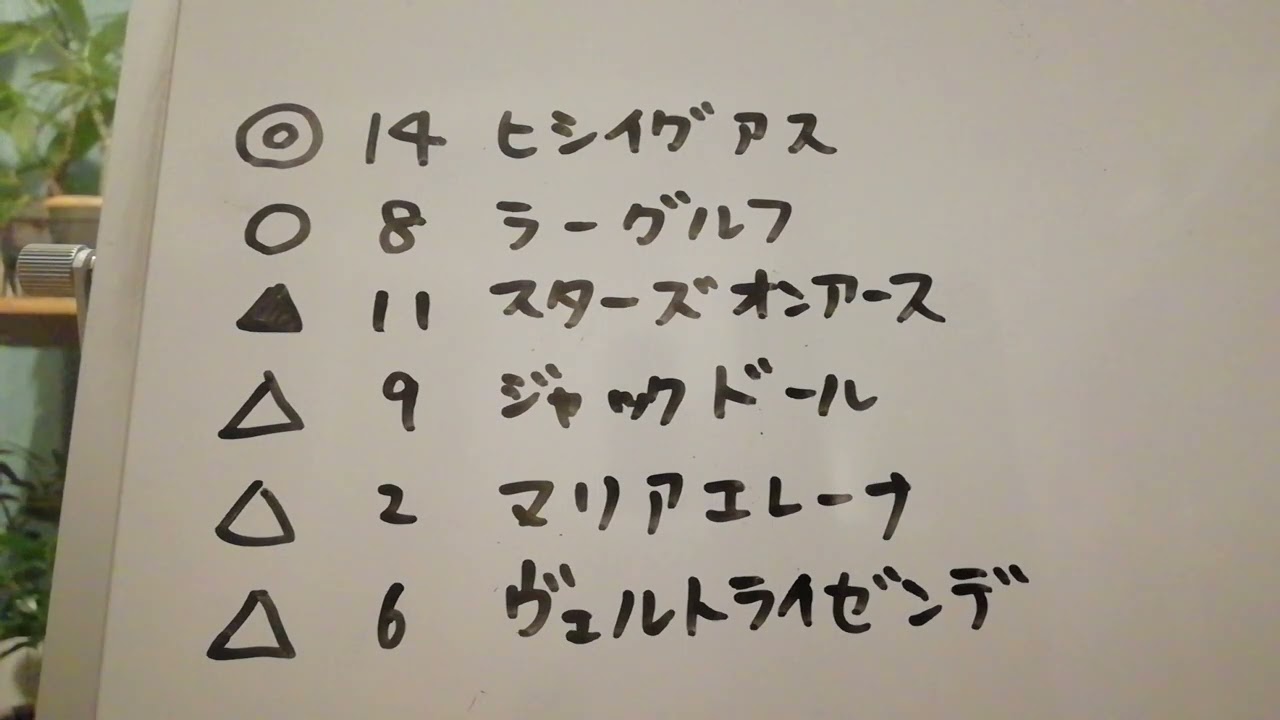 ◎ 14 ヒシイグアス
○ 8 ラーグルフ
▲ 11 スターズオンアース
△ 9 ジャックドール
△ 2 マリアエレーナ
△ 6 ヴェルトライゼンデ